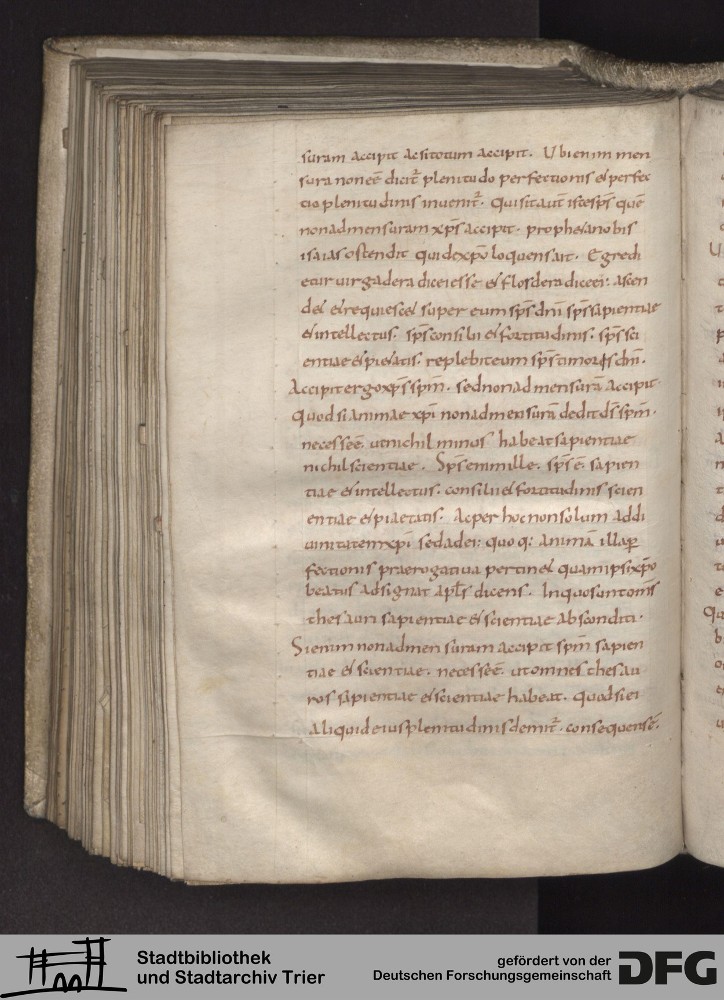 suram accipit acsitotum accipit. Ubienim men
sura nonee dicit plenitudo perfectionis et perfec
tio plenitudinis invenit. Quisitaut istesps que
nonadmensuram xps accipit. propheta nobis
isaias ostendit quidexpo loquens ait. Egredi
etur uirga deradice iesse et flos deradice ei. ascen
det et requiescet super eum sps dni sps sapientiae
et intellectus. sps consilii et fortitudinis. sps sci
entiae et pietatis. replebit eum sps timoris dni.
Accipit ergo xps spm. sed non ad mensura accipit
Quod si animae xpi non ad mensura dedit ds spm.
necesse e. ut nichil minus habeat sapientiae
nichil scientiae. Sps enim ille. sps e sapien
tiae et intellectus. consilii et fortitudinis. scien
entiae et piaetatis. Ac per hoc non solum addi
uinitatem xpi sed adei: quoq: anima illa per
fectionis praerogatiua pertinet quam ipsi xpo
beatus adsignat apls dicens. In quo sunt omns
thesauri sapientiae et scientiae absconditi.
Si enim non ad mensuram accipit spm sapien
tiae et scientiae. necesse e. ut omnes thesau
ros sapientiae et scientiae habeat. Quod si ei
aliquid eius plenitudinis demit. consequens e.
Stadtbibliothek
und Stadtarchiv Trier
gefördert von der
Deutschen Forschungsgemeinschaft
DFG